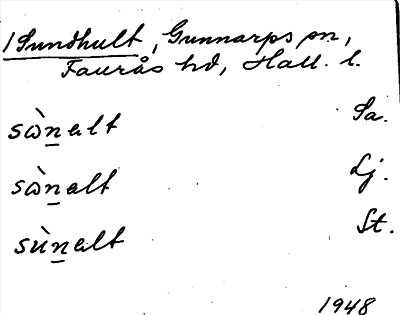 1 Sundhult, Gunnarps sn,
Faurås hd, Hall. l.
sὼn̲alt Sa.
sὼn̲alt Lj.
sùn̲alt St.
1948